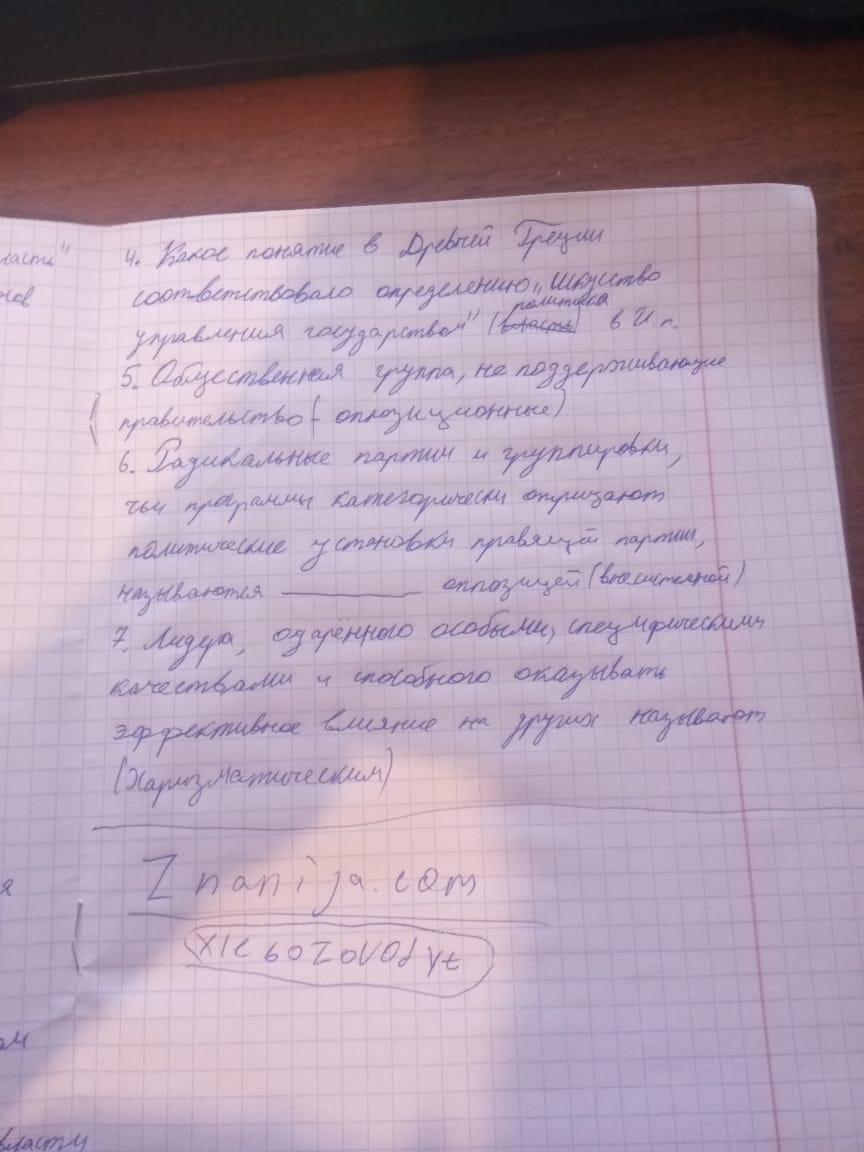 ласть"
4. Какое понятие в Древней Греции
соответствовало определению „Искусство
политика
управления государством" (власть) в И.п.
5. Общественная группа, не поддерживающие
правительство (оппозиционные)
6. Радикальные партии и группировки,
чьи программы категорически отрицают
политические установки правящей партии,
называются ________ оппозицей (внесистемной)
7. Лидера, одарённого особыми, специфическими
качествами и способного оказывать
эффективное влияние на других называют
(Харизматическим)
Znanija.com
я
ом
власти